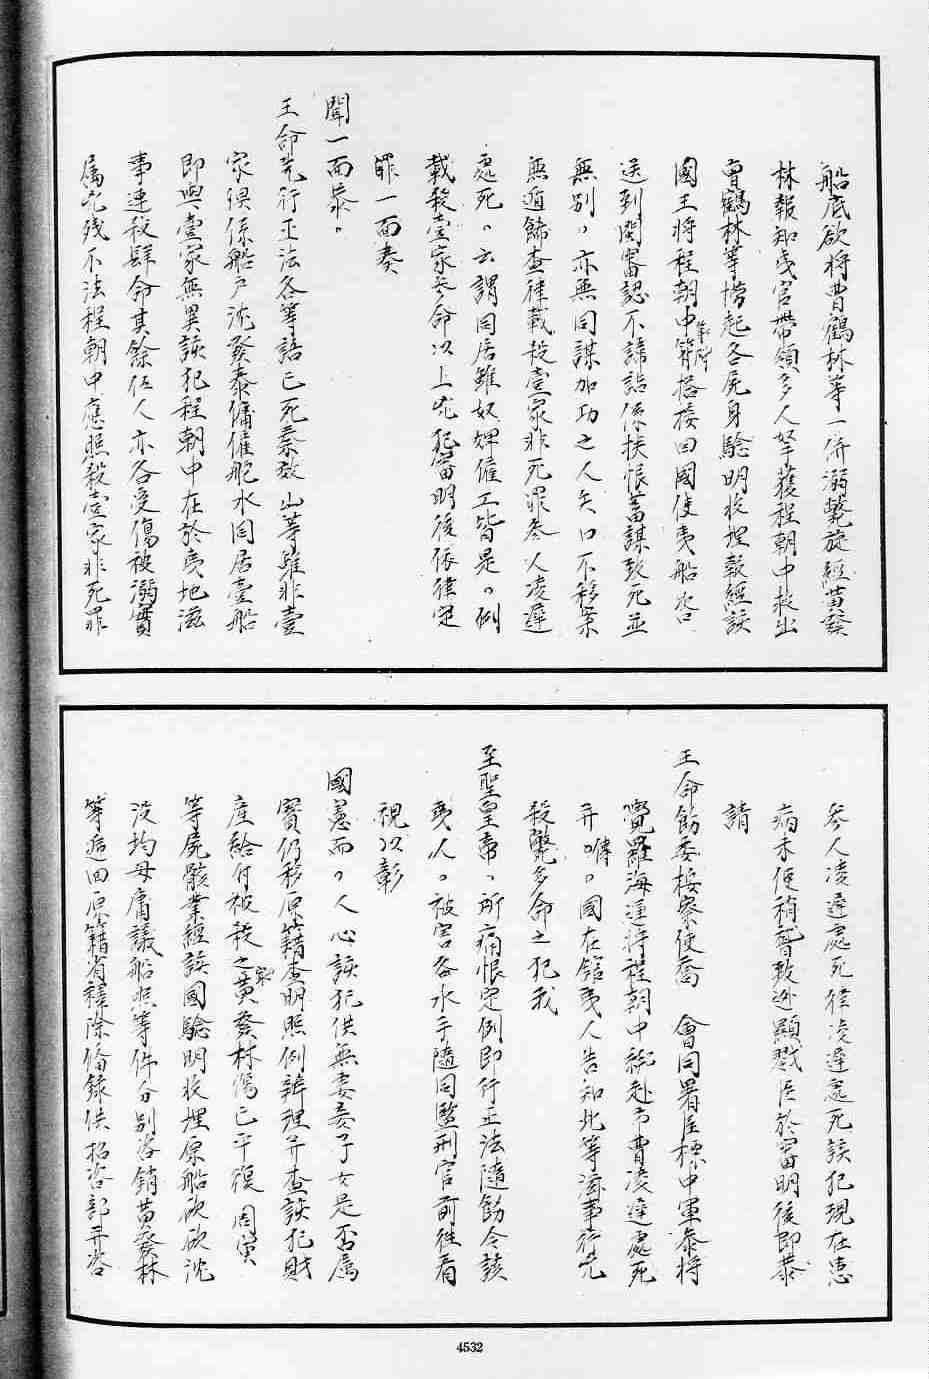 船底欲將曹鶴林等一併溺斃旋經黃發
林報知夷官帶領多人拏獲程朝中救出
曹鶴林等撈起各屍身驗明收埋報經該
國王將程朝中等附搭接回國使夷船咨
送到閩審認不諱詰係挾恨蓄謀致死並
無別，亦無同謀加功之人矢口不移案
無遁飾查律載殺壹家非死罪叁人凌遲
處死。云謂同居雖奴婢僱工皆是。例
載殺壹家多命以上兇犯審明後依律定
罪一面奏
聞一面恭。
王命先行正法各等語已死秦效山等雖非壹
家俱係船戶沈發泰僱舵水同居壹船
即與壹家無異該犯程朝中在於夷地滋
事連殺肆命其餘伍人亦各受傷被溺實
屬兇殘不法程朝中應照殺壹家非死罪
叁人凌遲處死律凌遲處死該犯現在患
病未便稍稽致逃顯戮臣於審明後即恭
請
王命飭委按察使喬 會同署臣標中軍參將
覺羅海運將程朝中綁赴市曹凌遲處死
并傳。國在館夷人告知此等滋事行兇
殺斃多命之犯我
至聖皇帝、所痛恨定例即行正法隨飭令該
夷人。被害各水手隨同監刑官前往看
視以彰
國憲而。人心該犯供無妻妾子女是否屬
實仍移原籍查明照例辦理并查該犯財
產給付被殺之家黃發林傷已平復 同黨
等屍骸業經該國驗明收埋原船欣欲沈
沒均毋庸議船照等件分別咨銷黃發林
等遞回原籍省釋除備錄供招咨部并咨
4532